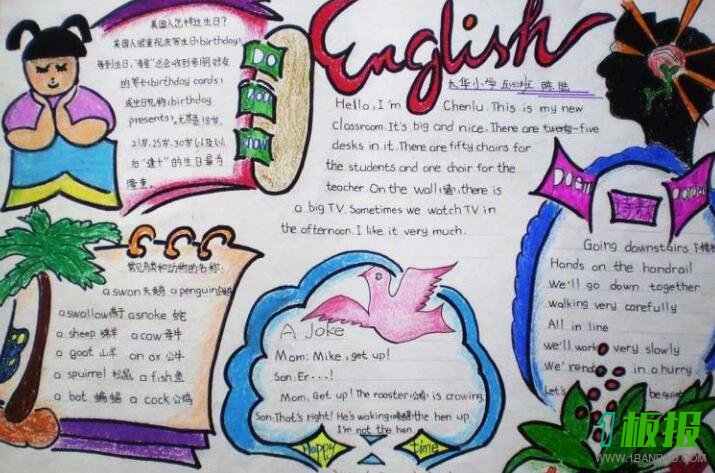 美国人怎样过生日?
美国人很重视庆寿生日(birthday),
等到生日,"寿星"总会收到亲朋好友
的寄卡(birthday cards),
或生日礼物(birthday
presents),尤其是18岁、
21岁、25岁、30岁以及以
后"逢十"的生日最为
隆重。
DO
YOU
know
English
大华小学
Hello, I'm Chenlu. This is my new
classroom. It's big and nice. There are twenty-five
desks in it. There are fifty chairs for
the students and one chair for the
teacher. On the wall(墙), there is
a big TV. Sometimes we watch TV in
the afternoon. I like it very much.
常见鸟类和动物的名称:
a swan 天鹅 a penguin
a swallow 燕子 a snake 蛇
a sheep 绵羊 a cow 母牛
a goat 山羊 an ox 公牛
a spuirrel 松鼠 a fish 鱼
a bat 蝙蝠 a cock 公鸡
A Joke
Mom: Mike, get up!
Son: Er...!
Mom: Get up! The rooster(公鸡) is crowing.
Son: That's right! He's waking(唤醒) the hen up.
I'm not the hen.
Happy time
Poem
诗歌
Going downstairs 下楼梯
Hands on the handrail
We'll go down together
walking very carefully
All in line
we'll work very slowly
We' in a hurry
Let's be quiet
1板报
WWW.1BANBAO.COM